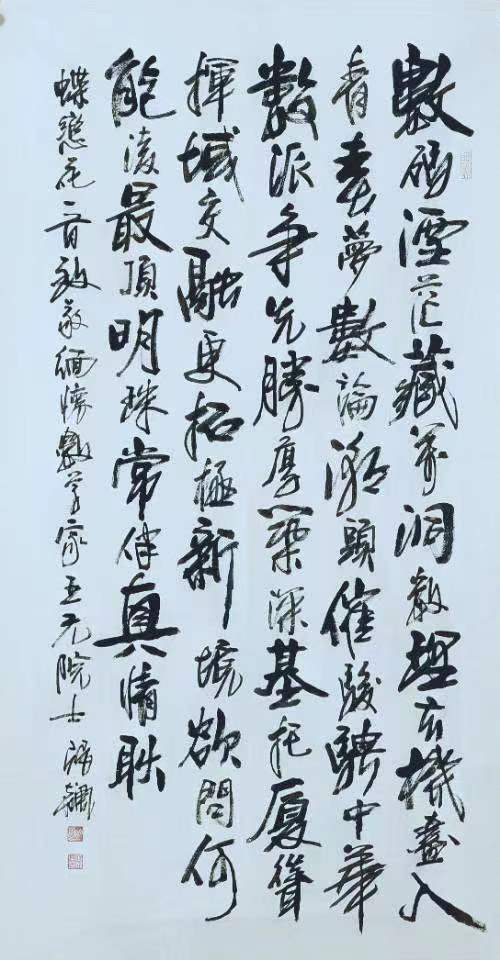 數湮茫藏洞數理玄機盡入
青春夢數論潮頭催駿騁中華
數派爭先勝厚築深基托廈聳
揮域交融更拓極新境欲問何
能凌最頂明珠常伴真情耿
蝶戀花一首致敬緬懷數學家王元院士